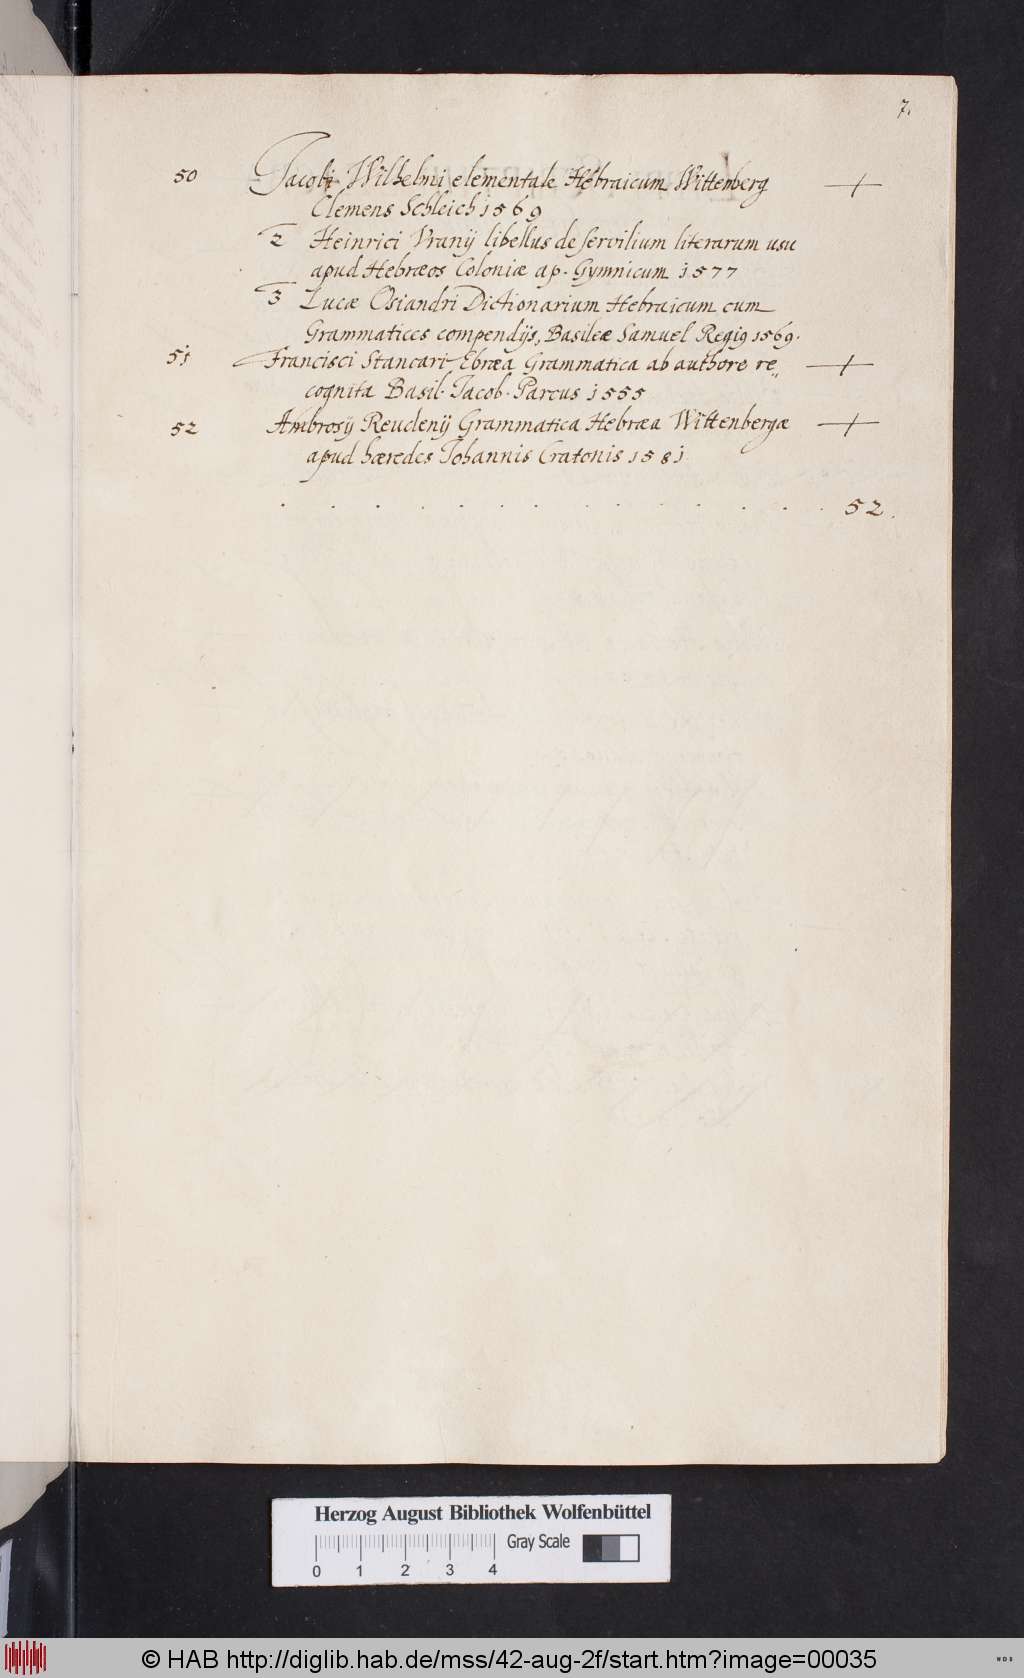 7.
50 Jacobi Wilhelmi elementale Hebraicum Wittenberg
Clemens Schleich 1569
2 Heinrici Vranij libellus de servilium literarum usu
apud Hebræos Coloniæ ap. Gymnicum 1577
3 Lucæ Osiandri Dictionarium Hebraicum cum
Grammatices compendijs, Basileæ Samuel Regig 1569.
51 Francisci Stancari Ebræa Grammatica ab authore re„
cognita Basil. Jacob. Parcus 1555
52 Ambrosij Reudenij Grammatica Hebræa Wittenbergæ
apud hæredes Johannis Cratonis 1581
. . . . . . . . . . . . . 52.
Herzog August Bibliothek Wolfenbüttel
Gray Scale
0 1 2 3 4
© HAB http://diglib.hab.de/mss/42-aug-2f/start.htm?image=00035
WDB